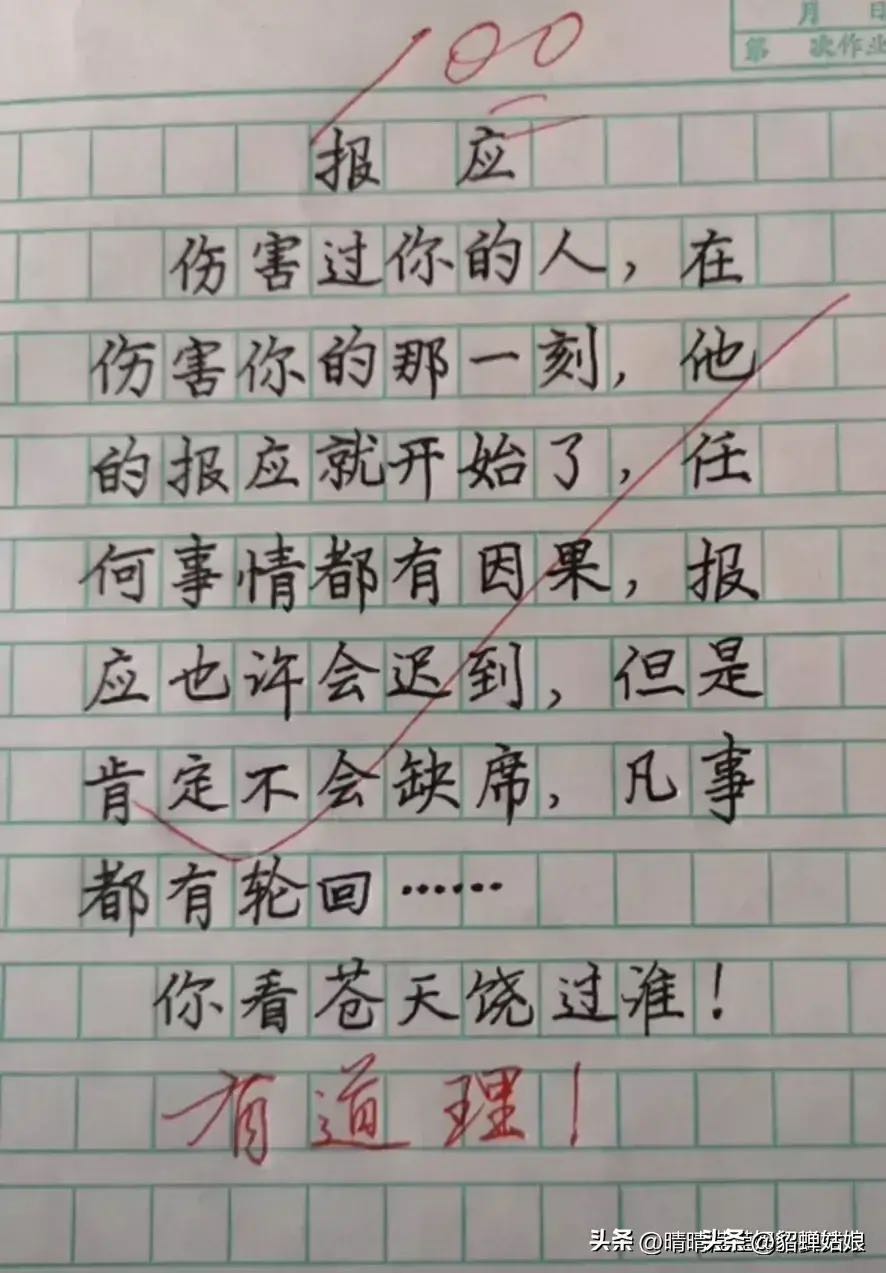 月 日
第 次作业
100
报应
伤害过你的人，在
伤害你的那一刻，他
的报应就开始了，任
何事情都有因果，报
应也许会迟到，但是
肯定不会缺席，凡事
都有轮回……
你看苍天饶过谁！
有道理！
头条 @晴晴
头条 @貂蝉姑娘